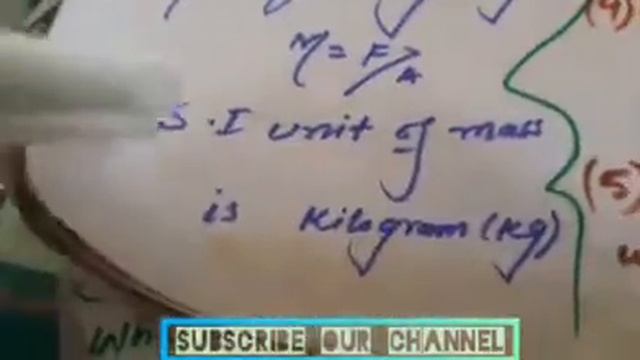 (4)
M = F/A
S.I unit of mass
is Kilogram (Kg)
(5)
Wh
SUBSCRIBE OUR CHANNEL